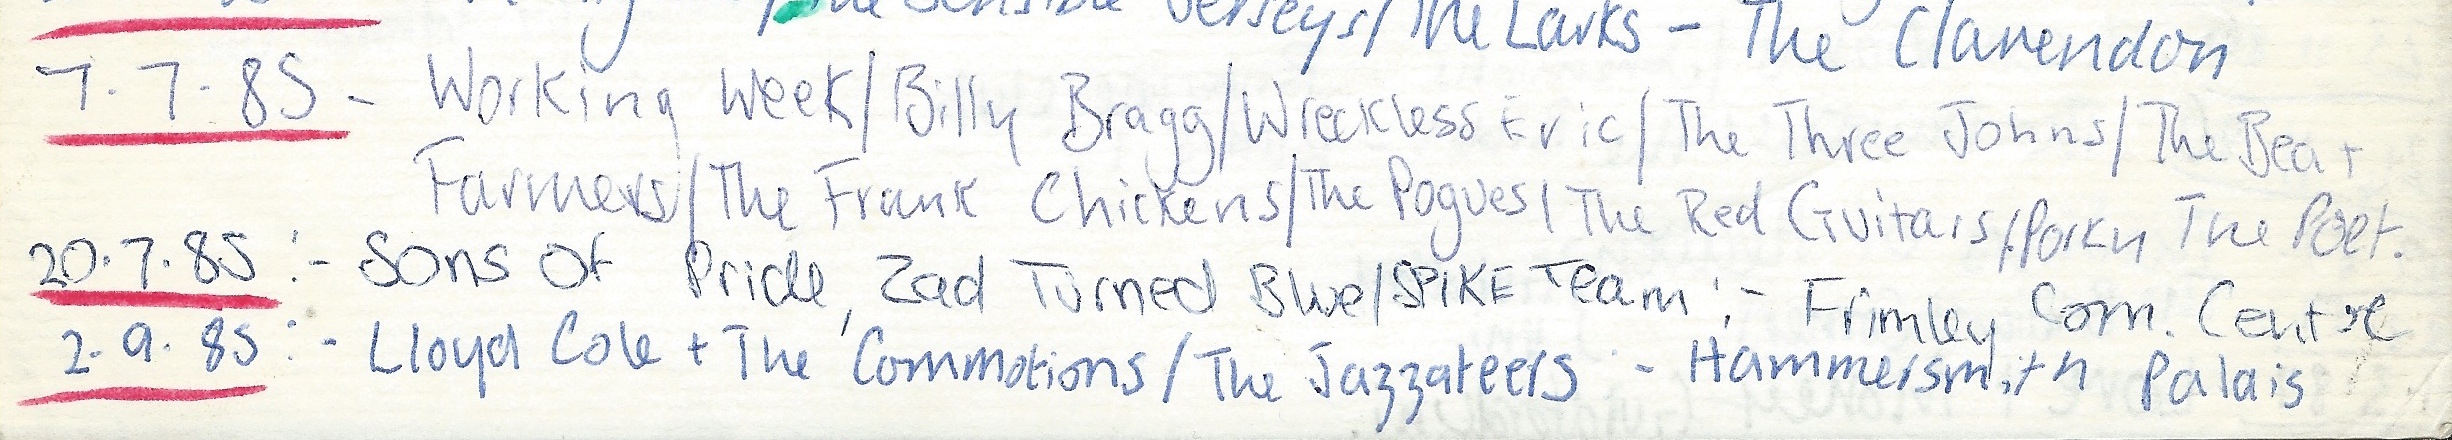 The Sensible Jerseys/The Larks - The Clarendon
7.7.85 - Working Week/Billy Bragg/Wreckless Eric/The Three Johns/The Beat
Farmers/The Frank Chickens/The Pogues/The Red Guitars/Porky The Poet.
20.7.85 :- Sons Of Pride, Zad Turned Blue/SPIKE Team :- Frimley Com. Centre
2.9.85 :- Lloyd Cole + The Commotions/The Jazzateers - Hammersmith Palais